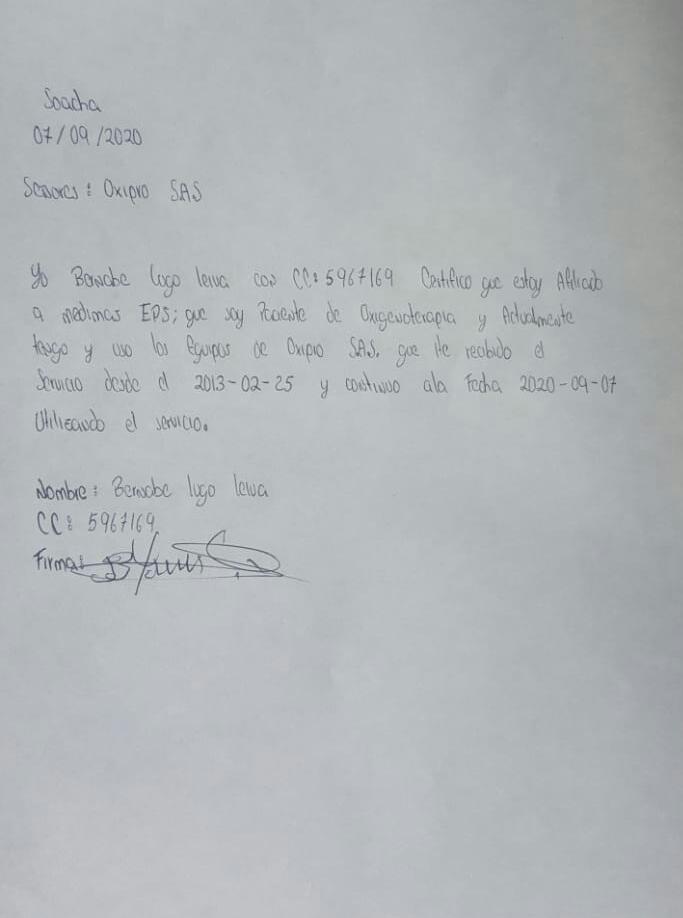 Soacha
07/09/2020
Señores: Oxipro SAS
Yo Bernabe lugo leiva con CC: 5967169 Certifico que estoy Afiliado
a medimas EPS; que soy Paciente de Oxigenoterapia y Actualmente
tengo y uso los Equipos de Oxipro SAS. que He recibido el
Servicio desde el 2013-02-25 y continuo ala Fecha 2020-09-07
Utilizando el servicio.
Nombre: Bernabe lugo leiva
CC: 5967169
Firma: